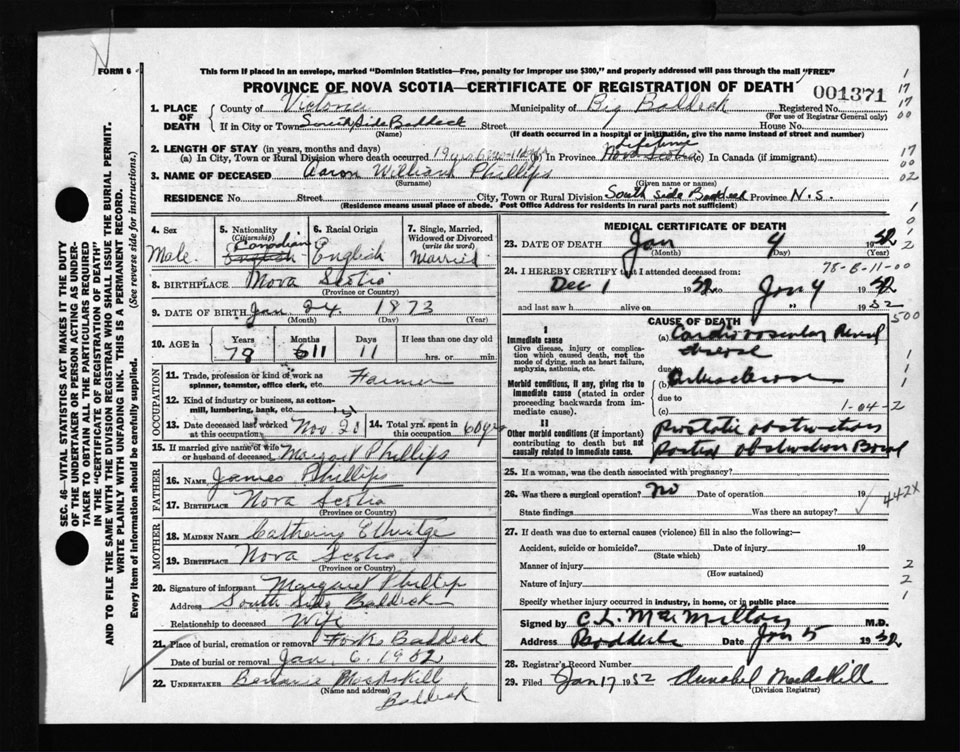 N
FORM 6
This form if placed in an envelope, marked "Dominion Statistics—Free, penalty for improper use $300," and properly addressed will pass through the mail "FREE"
PROVINCE OF NOVA SCOTIA—CERTIFICATE OF REGISTRATION OF DEATH
001371
1. PLACE OF DEATH
County of Victoria Municipality of Big Baddeck Registered No.
(For use of Registrar General only)
If in City or Town South Side Baddeck Street House No.
(Name) (If death occurred in a hospital or institution, give the name instead of street and number)
2. LENGTH OF STAY (in years, months and days)
(a) In City, Town or Rural Division where death occurred (b) In Province lifetime Nova Scotia (c) In Canada (if immigrant)
3. NAME OF DECEASED Aaron William Phillips
(Surname) (Given name or names)
RESIDENCE No. Street City, Town or Rural Division South Side Baddeck Province N.S.
(Residence means usual place of abode. Post Office Address for residents in rural parts not sufficient)
4. Sex
Male.
5. Nationality
(Citizenship)
Canadian
English
6. Racial Origin
English
7. Single, Married, Widowed or Divorced
(write the word)
Married
8. BIRTHPLACE Nova Scotia
(Province or Country)
9. DATE OF BIRTH Jan. 24. 1873
(Month) (Day) (Year)
10. AGE in Years Months Days If less than one day old
78 11 11 hrs. or min.
OCCUPATION
11. Trade, profession or kind of work as spinner, teamster, office clerk, etc. Farmer
12. Kind of industry or business, as cotton-mill, lumbering, bank, etc.
13. Date deceased last worked at this occupation Nov 20
14. Total yrs. spent in this occupation 60 yrs
15. If married give name of wife or husband of deceased Margaret Phillips
FATHER
16. NAME James Phillips
17. BIRTHPLACE Nova Scotia
(Province or Country)
MOTHER
18. MAIDEN NAME Catherine Ethridge
19. BIRTHPLACE Nova Scotia
(Province or Country)
20. Signature of informant Margaret Phillip
Address South Side Baddeck
Relationship to deceased Wife
21. Place of burial, cremation or removal Forks Baddeck
Date of burial or removal Jan. 6. 1952
22. UNDERTAKER MacAskill
(Name and address)
Baddeck
MEDICAL CERTIFICATE OF DEATH
23. DATE OF DEATH Jan 4 1952
(Month) (Day)
78-B-11-00
24. I HEREBY CERTIFY that I attended deceased from:
Dec 1 1952 to Jan 4 1952
and last saw h alive on " " 1952
CAUSE OF DEATH
I
Immediate cause
Give disease, injury or complication which caused death, not the mode of dying, such as heart failure, asphyxia, asthenia, etc.
(a) Cardiovascular Renal
disease
due to
Morbid conditions, if any, giving rise to immediate cause (stated in order proceeding backwards from immediate cause).
(b) Arteriosclerosis
due to
(c)
1-04-2
II
Other morbid conditions (if important) contributing to death but not causally related to immediate cause.
Prostatic obstruction
Partial obstruction Bowel
25. If a woman, was the death associated with pregnancy?
26. Was there a surgical operation? No Date of operation 19
442X
State findings Was there an autopsy?
27. If death was due to external causes (violence) fill in also the following:
Accident, suicide or homicide? Date of injury 19
(State which)
Manner of injury
(How sustained)
Nature of injury
Specify whether injury occurred in industry, in home, or in public place
Signed by C.L. MacMillan M.D.
Address Baddeck Date Jan 5 1952
28. Registrar's Record Number
29. Filed Jan 17 1952 Annabel MacAskill
(Division Registrar)
1
17
17
00
17
00
02
1
0
1
2
500
1
1
1
2
2
1
SEC. 46—VITAL STATISTICS ACT MAKES IT THE DUTY
OF THE UNDERTAKER OR PERSON ACTING AS UNDER-
TAKER TO OBTAIN ALL THE PARTICULARS REQUIRED
IN THE "CERTIFICATE OF REGISTRATION OF DEATH"
AND TO FILE THE SAME WITH THE DIVISION REGISTRAR WHO SHALL ISSUE THE BURIAL PERMIT.
WRITE PLAINLY WITH UNFADING INK. THIS IS A PERMANENT RECORD.
Every item of information should be carefully supplied. (See reverse side for instructions.)